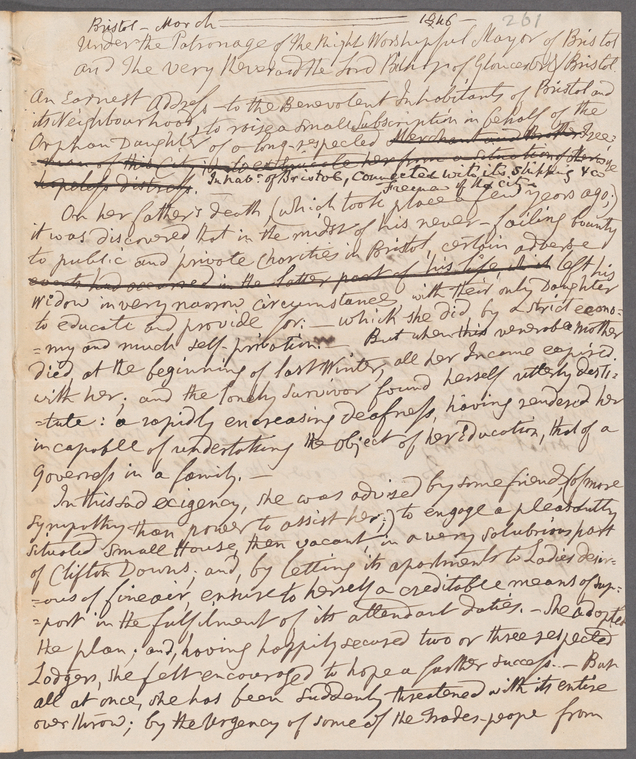 Bristol - March 1846 - 261
Under the Patronage of the Right Worshipful Mayor of Bristol
and the very Reverend the Lord Bishop of Gloucester & Bristol
An Earnest Address - to the Benevolent Inhabitants of Bristol and
its Neighbourhood, to raise a small Subscription in behalf of the
Orphan Daughter of a long-respected Merchant and Free=
=man of this City is to extricate her from a situation of
hopeless distress. Inhabt. of Bristol, Connected with its Shipping &c
Freeman of the city
On her father's death (which took place a few years ago)
it was discovered that in the midst of his never-failing bounty
to public and private charities in Bristol, certain adverse
events had occurred in the latter part of his life which left his
Widow in very narrow circumstance, with their only Daughter
to educate and provide for: - which she did by a strict econo=
=my and much self privation. - But when this mother
died at the beginning of last Winter, all her Income expired
with her; and the lonely survivor found herself utterly desti=
=tute: a rapidly encreasing deafness, having rendered her
incapable of undertaking the object of her Education, that of a
Governess in a family. -
In this sad exigency, she was advised by some friends (of more
sympathy than power to assist her;) to engage a pleasantly
situated Small House, then vacant in a very salubrious part
of Clifton Downs; and, by letting its apartments to Ladies desir=
=ous of fine air, ensure to herself a creditable means of sup=
=port in the fulfilment of its attendant duties. - She adopted
the plan; and, having happily secured two or three respected
Lodgers, she felt encouraged to hope a further success. - But
all at once, she has been suddenly threatened with its entire
overthrow; by the Urgency of some of the trades-peope from